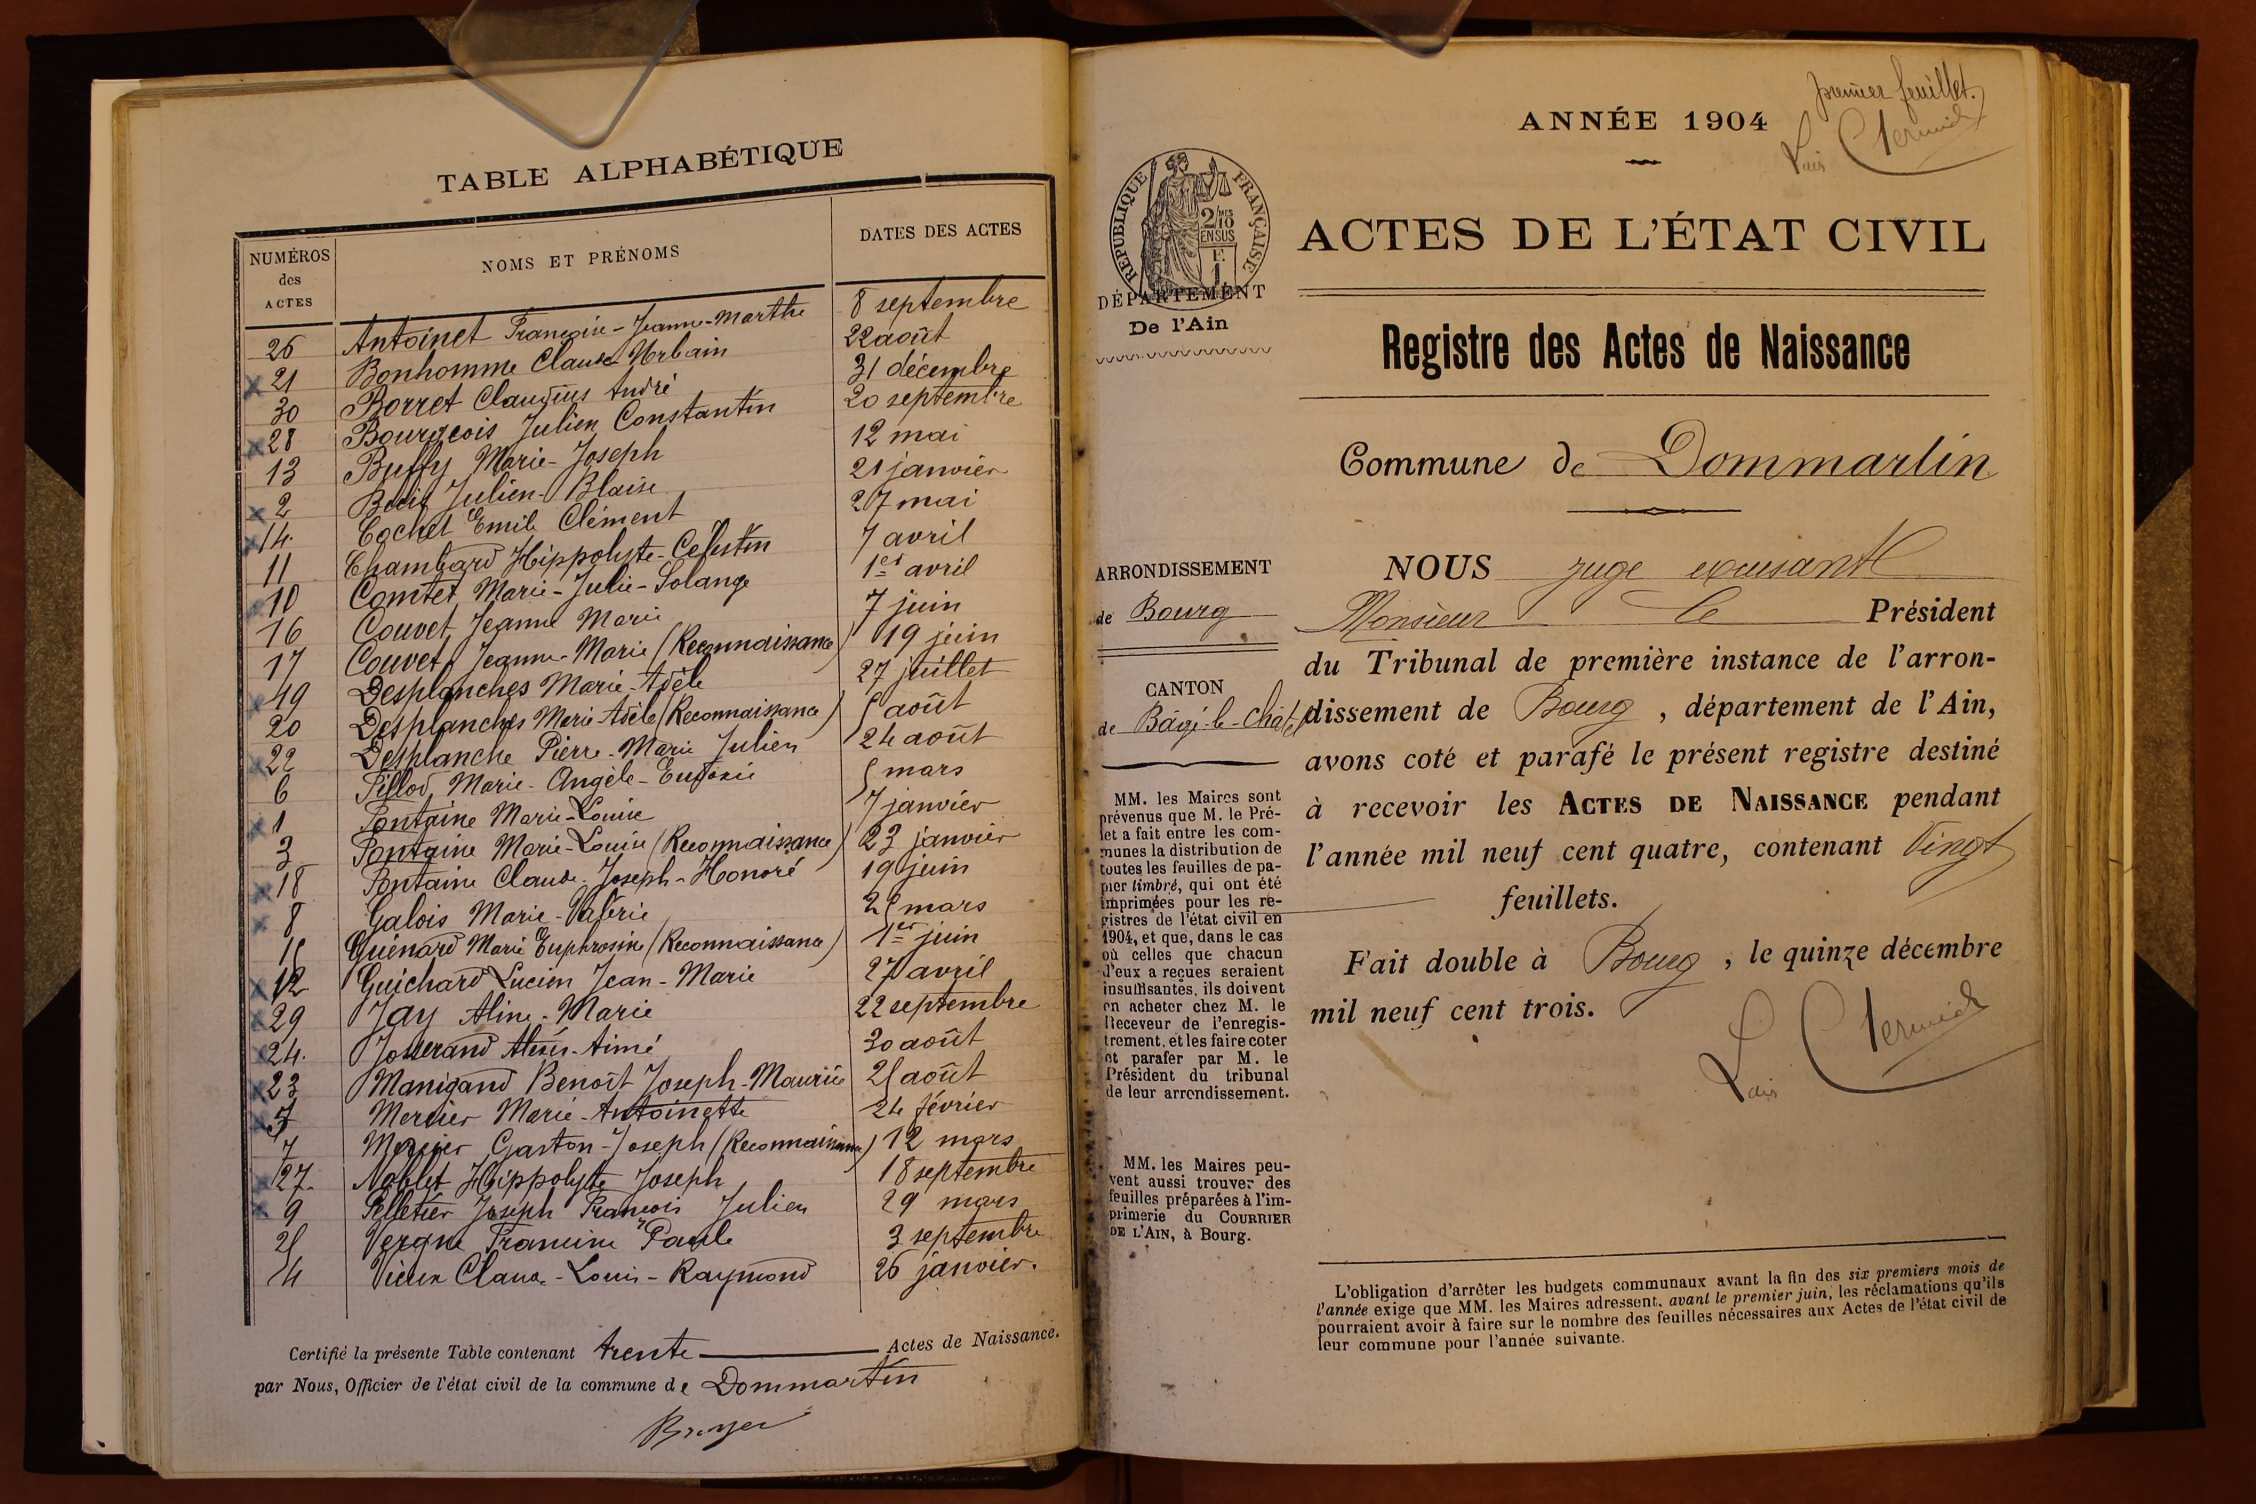 TABLE ALPHABÉTIQUE
NUMÉROS des ACTES
NOMS ET PRÉNOMS
DATES DES ACTES
26 Antoinet Françoise-Jeanne-Marthe 8 septembre
21 Bonhomme Claude Urbain 22 août
30 Borret Claudius André 31 décembre
28 Bourgeois Julien Constantin 20 septembre
13 Buffy Marie-Joseph 12 mai
2 Julien-Blaise 21 janvier
14. Cochet Emile Clément 27 mai
11 Chambard Hippolyte-Célestin 7 avril
10 Comtet Marie-Julie-Solange 1er avril
16 Couvet Jeanne Marie 7 juin
17 Couvet Jeanne-Marie (Reconnaissance) 19 juin
19 Desplanches Marie-Adèle 27 juillet
20 Desplanches Marie-Adèle (Reconnaissance) 5 août
22 Desplanche Pierre-Marie Julien 24 août
6 Fillod, Marie-Angèle- 5 mars
1 Fontaine Marie-Louise 7 janvier
3 Fontaine Marie-Louise (Reconnaissance) 23 janvier
18 Fontaine Claude-Joseph-Honoré 19 juin
8 Galois Marie-Valérie 25 mars
15 Guénard Marie Euphrosine (Reconnaissance) 1er juin
12 Guichard Lucien Jean-Marie 27 avril
29 Jay Aline-Marie 22 septembre
24. Josserand Alexis-Aimé 30 août
23 Manigand Benoît Joseph-Maurice 25 août
5 Mercier Marie-Antoinette 24 février
7 Mercier Gaston-Joseph (Reconnaissance) 12 mars
27. Noblet Hippolyte Joseph 18 septembre
9 Pelletier Joseph François Julien 29 mars
25 Vergne Francine Paule 3 septembre
4 Vieux Claude-Louis-Raymond 26 janvier.
Certifié la présente Table contenant trente Actes de Naissance.
par Nous, Officier de l'état civil de la commune de Dommartin
Broyer
premier feuillet.
ANNÉE 1904
RÉPUBLIQUE FRANÇAISE
2/10
EN SUS
F.
1
DÉPARTEMENT
De l'Ain
ACTES DE L'ÉTAT CIVIL
Registre des Actes de Naissance
Commune de Dommartin
ARRONDISSEMENT
de Bourg
CANTON
de Bâgé-le-Châtel
MM. les Maires sont
prévenus que M. le Pré-
fet a fait entre les com-
munes la distribution de
toutes les feuilles de pa-
pier timbré, qui ont été
imprimées pour les re-
gistres de l'état civil en
1904, et que, dans le cas
où celles que chacun
d'eux a reçues seraient
insuffisantes, ils doivent
en acheter chez M. le
Receveur de l'enregis-
trement, et les faire coter
et parafer par M. le
Président du tribunal
de leur arrondissement.
MM. les Maires peu-
vent aussi trouver des
feuilles préparées à l'im-
primerie du COURRIER
DE L'AIN, à Bourg.
NOUS juge
Monsieur le Président
du Tribunal de première instance de l'arron-
dissement de Bourg, département de l'Ain,
avons coté et parafé le présent registre destiné
à recevoir les ACTES DE NAISSANCE pendant
l'année mil neuf cent quatre, contenant Vingt
feuillets.
Fait double à Bourg, le quinze décembre
mil neuf cent trois.
L'obligation d'arrêter les budgets communaux avant la fin des six premiers mois de
l'année exige que MM. les Maires adressent, avant le premier juin, les réclamations qu'ils
pourraient avoir à faire sur le nombre des feuilles nécessaires aux Actes de l'état civil de
leur commune pour l'année suivante.